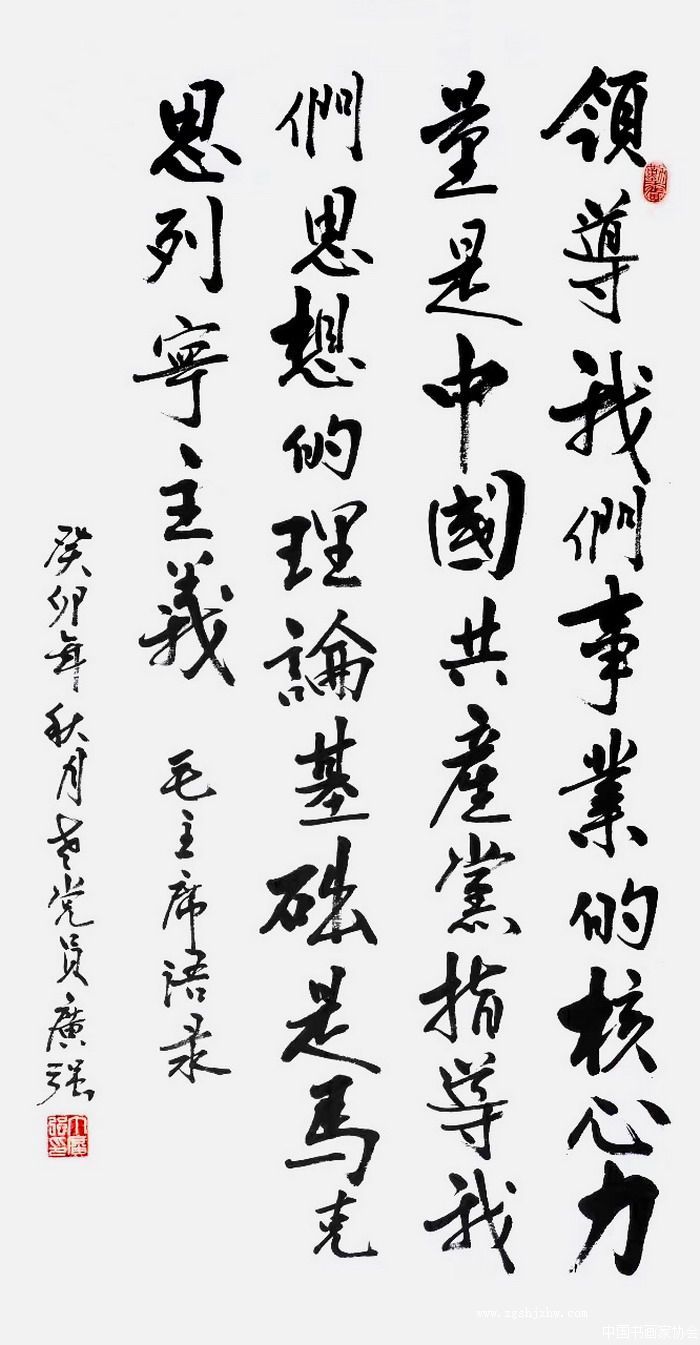 領導我們事業的核心力
量是中國共産黨指導我
們思想的理論基础是馬克
思列寧主義 毛主席语录
癸卯年秋月老党員廣强
www.zgshjzhw.com
中国书画家协会